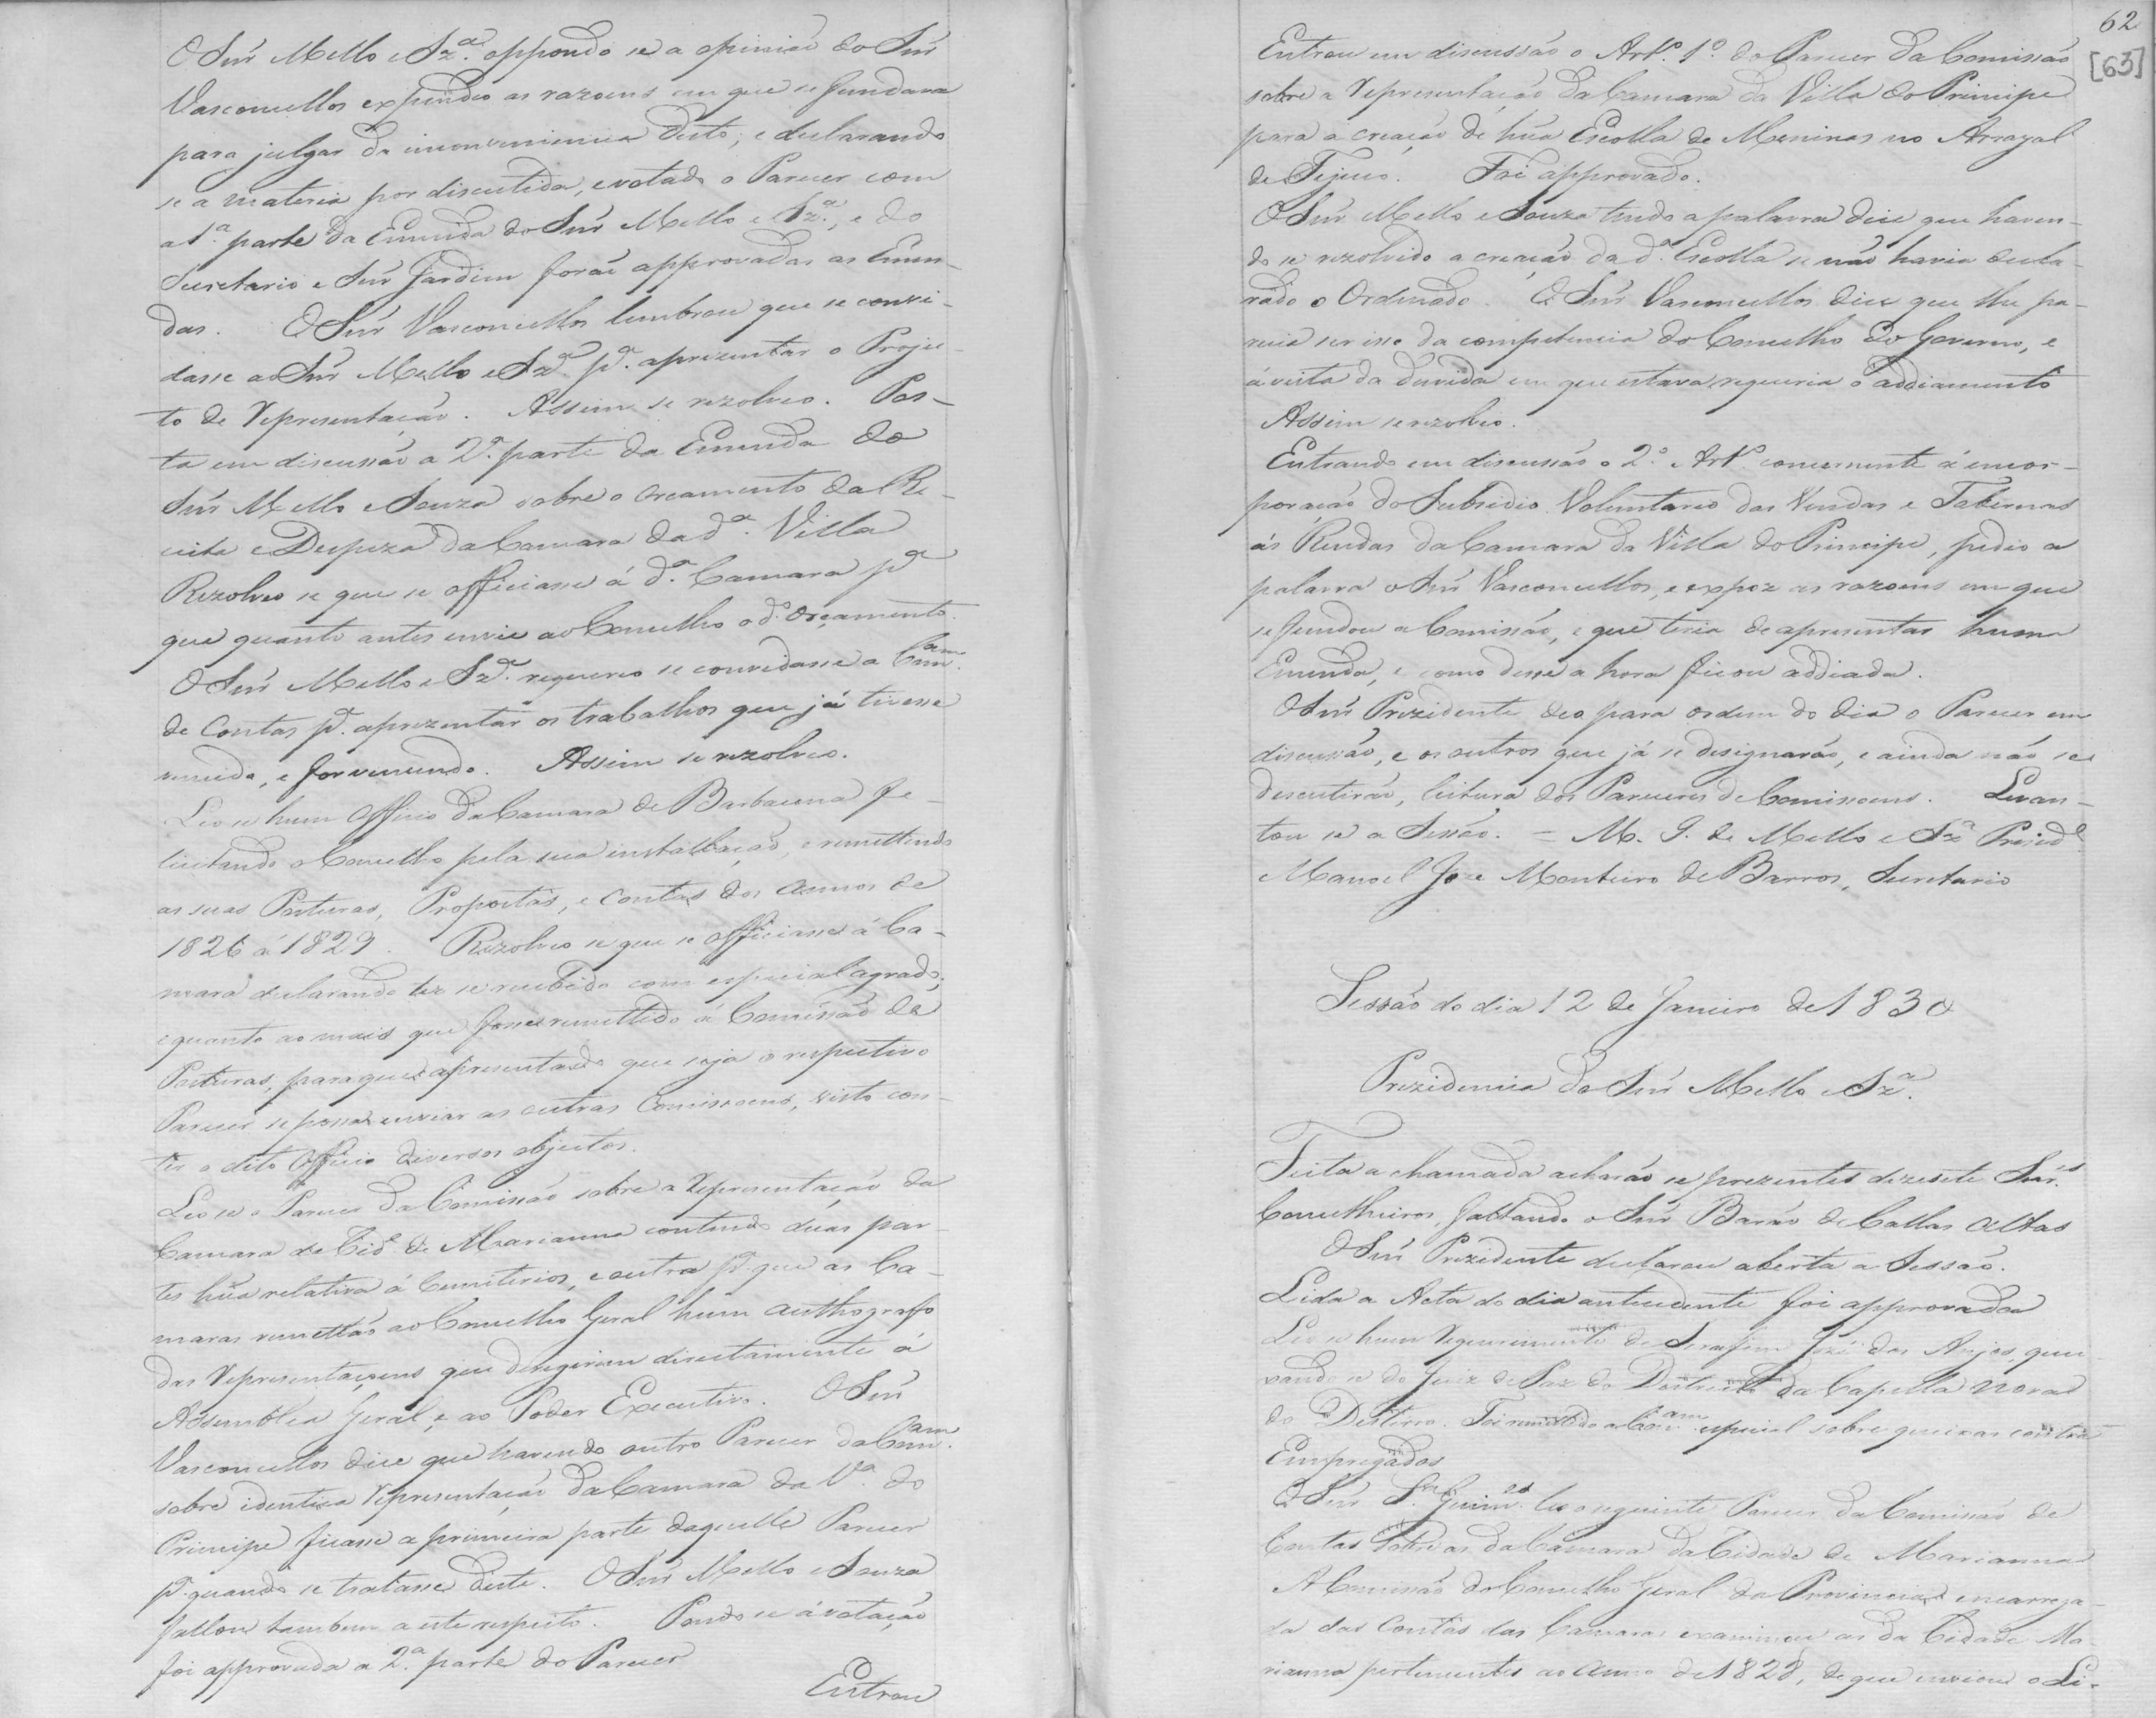 O Snr̃ Mello e Sz.ª oppondo se a opinião do Snr̃
Vasconcellos expendeo as razoens em que se fundava
para julgar da inconveniencia disto; e declarando
se a materia por discutida, e votado o Parecer com
a 1.ª parte da Emenda do Snr̃ Mello e Sz.ª, e do
Secretario e Snr̃ Jardim forão approvadas as Emen-
das. O Snr̃ Vasconcellos lembrou que se convi-
dasse ao Snr̃ Mello e Sz.ª p.ª aprezentar o Projec-
to de Representação. Assim se rezolveo. Pos-
ta em discussão a 2.ª parte da Emenda do
Snr̃ Mello e Souza sobre o orçamento da Re-
ceita e Despeza da Camara da d.ª Villa
Rezolveo se que se officiasse á d.ª Camara p.ª
que quanto antes envie ao Conselho o d.º orçamento.
O Snr̃ Mello e Sz.ª requereo se convidasse a Com.am
de Contas p.ª aprezentar os trabalhos que já tivesse
reunido, e for reunindo. Assim se rezolveo.
Leo se hum Officio da Camara de Barbacena fe-
licitando o Conselho pela sua installação, e remettendo
as suas Posturas, Propostas, e Contas dos annos de
1826 á 1829. Rezolveo se que se officiasse á Ca-
mara declarando ter se recebido com especial agrado;
e quanto ao mais que fosse remettido á Comissão de
Posturas, para que apresentado que seja o respectivo
Parecer se possa enviar as outras Comissoens, visto con-
ter o dito Officio diversos objectos.
Leo se o Parecer da Comissão sobre a Representação da
Camara da Cid.e de Marianna contendo duas par-
tes hũa relativa á Cemiterios, e outra p.ª que as Ca-
maras remettão ao Conselho Geral hum authografo
das Representaçoens que dirigirem directamente á
Assemblea Geral, e ao Poder Executivo. O Snr̃
Vasconcellos dice que havendo outro Parecer da Com.am
sobre identica Representação da Camara da V.ª do
Principe ficasse a primeira parte daquelle Parecer
p.ª quando se tratasse deste. O Snr̃ Mello e Souza
fallou tambem a este respeito. Pondo se á votação
foi approvada a 2.ª parte do Parecer
Entrou
62
[63]
Entrou em discussão o Art.º 1.º do Parecer da Comissão
sobre a Representação da Camara da Villa do Principe
para a creação de hũa Escolla de Meninas no Arrayal
de Tejuco. Foi approvado.
O Snr̃ Mello e Souza tendo a palavra dice que haven-
do se rezolvido a creação da d.ª Escolla se não havia decla-
rado o Ordenado. O Snr̃ Vasconcellos dice que lhe pa-
recia ser isso da competencia do Conselho do Governo, e
á vista da duvida em que estava requeria o addiamento
Assim se rezolveo.
Entrando em discussão o 2.º Art.º concernente á encor-
poração do Subsidio Voluntario das Vendas e Tabernas
ás Rendas da Camara da Villa do Principe, pedio a
palavra o Snr̃ Vasconcellos, e expoz as razoens em que
se fundou a Comissão, e que teria de apresentar huma
Emenda, e como desse a hora ficou addiada.
O Snr̃ Prezidente deo para ordem do dia o Parecer em
discussão, e os outros que já se designarão, e ainda não se
descutirão, leitura dos Pareceres de Comissoens. Levan-
tou se a Sessão. = M. I. de Mello e Sz.ª Presid.e
Manoel Joze Monteiro de Barros, Secretario
Sessão do dia 12 de Janeiro de 1830
Prezidencia do Snr̃ Mello e Sz.ª
Feita a chamada acharão se prezentes dezesete Snr̃.s
Conselheiros, faltando o Snr̃ Barão de Cattas Altas
O Snr̃ Prezidente declarou aberta a Sessão.
Lida a Acta do dia antecedente foi approvada
Leo se hum Requerimento de Serafim José dos Anjos, quei-
xando se do Juiz de Paz do Destricto da Capella nova
do Desterro. Foi remettido a Com.am especial sobre queixas contra
Empregados
O Snr̃ Guim.es leo o seguinte Parecer da Comissão de
Contas sobre as da Camara da Cidade de Marianna
A Comissão do Conselho Geral da Provincia encarrega-
da das Contas das Camaras examinou as da Cidade Ma-
rianna pertencentes ao anno de 1828, de que enviou o Li-